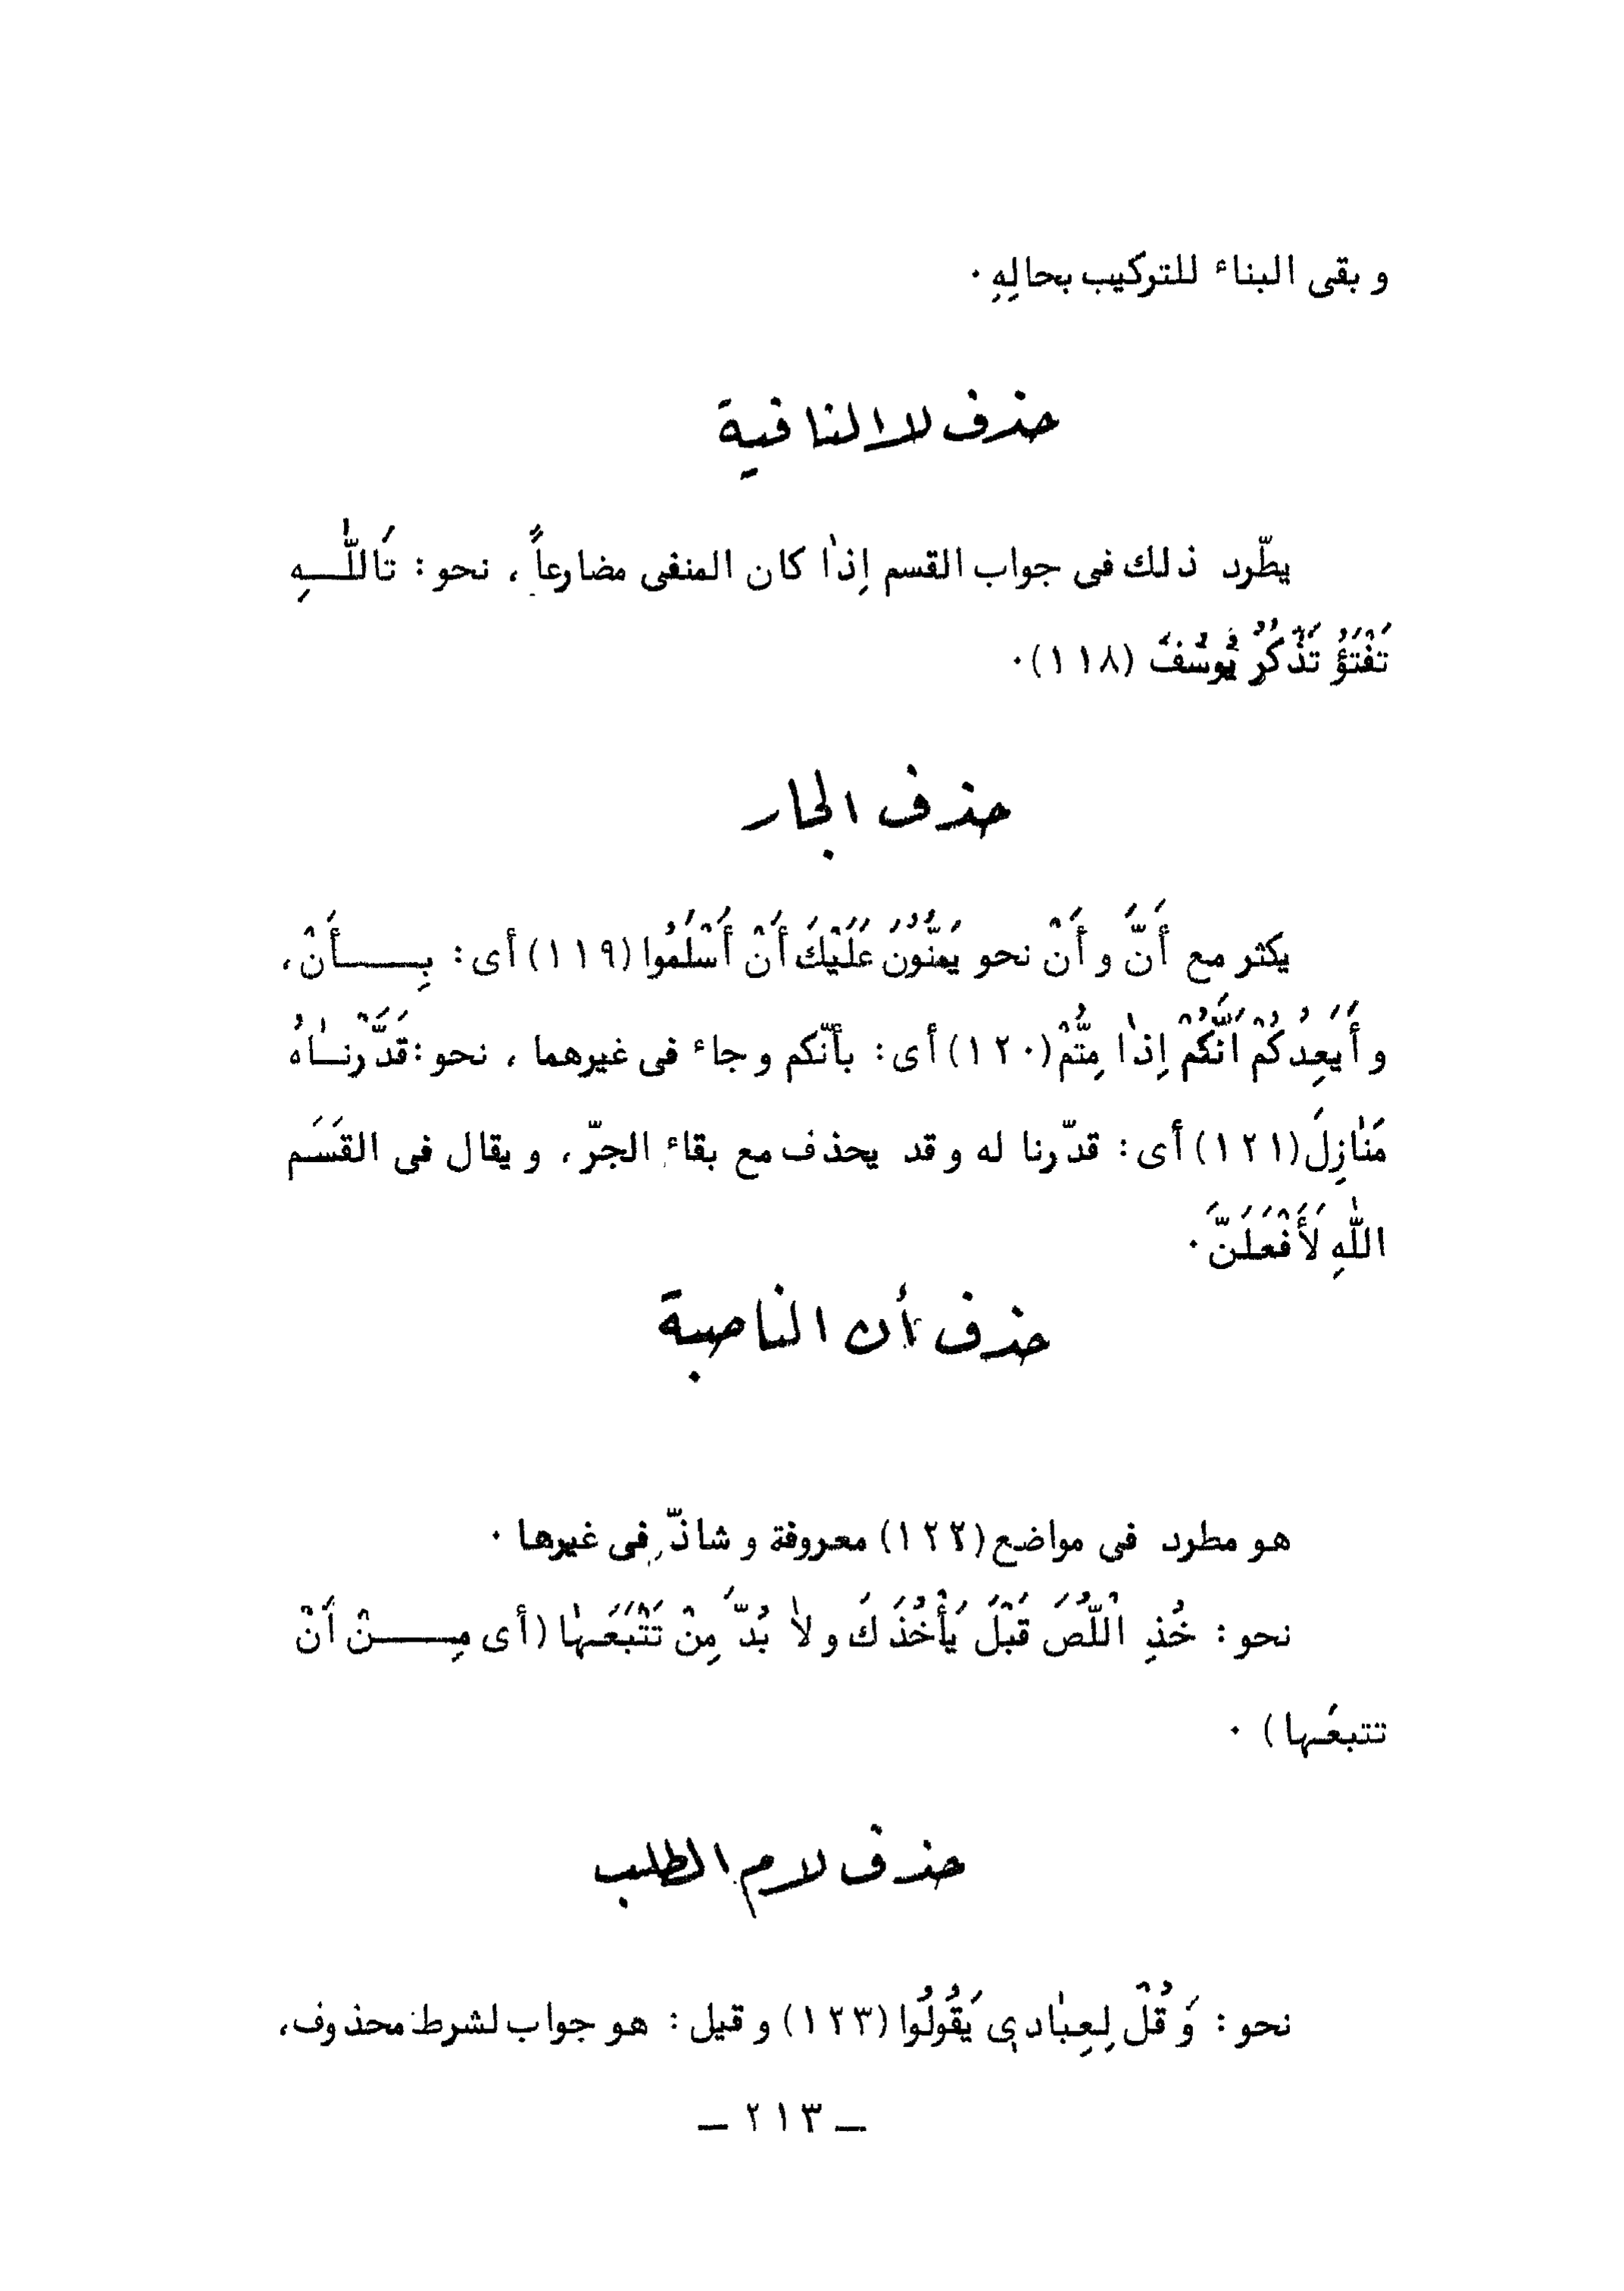 و بقى البناء للتركيب بحالِهِ ٠
حذف لا النافية
يطّرد ذلك فى جواب القسم إذٰا كان المنفى مضارعاً ، نحو : تَاللّٰـــهِ
تَفْتَؤُ تَذْكُرُ يُوسُفَ (١١٨)٠
حذف الجار
يكثر مع أَنَّ و أَنْ نحو يَمُنُّونَ عَلَيْكَ أَنْ أَسْلَمُوا (١١٩) أى : بِـــــأَنْ ،
و أَيَعِدُكُمْ اَنَّكُمْ إِذٰا مِتُّمْ (١٢٠) أى : بأنّكم و جاء فى غيرهما ، نحو : قَدَّرْنـٰـاهُ
مَنٰازِلَ (١٢١) أى : قدّرنا له و قد يحذف مع بقاء الجرّ ، و يقال فى القَسَـم
اللّٰهِ لَأَفْعَلَنَّ ٠
حذف أن الناصبة
هو مطرد فى مواضع (١٢٢) معروفة و شاذّ فى غيرها ٠
نحو : خُذِ اْللُّصَ قَبْلَ يَأْخُذَكَ و لاٰ بُدَّ مِنْ تَتْبَعَـهٰا (أى مِـــــنْ اَنْ
تتبعَـها ) ٠
حذف لام الطلب
نحو : وَ قُلْ لِعِبٰادِى يَقُولُوا (١٢٣) و قيل : هو جواب لشرط محذوف،
ـ ٢١٣ ـ